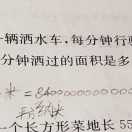 一辆洒水车，每分钟行驶
分钟洒过的面积是多
米 = 8400000000000
平方分米
一个长方形菜地长 55